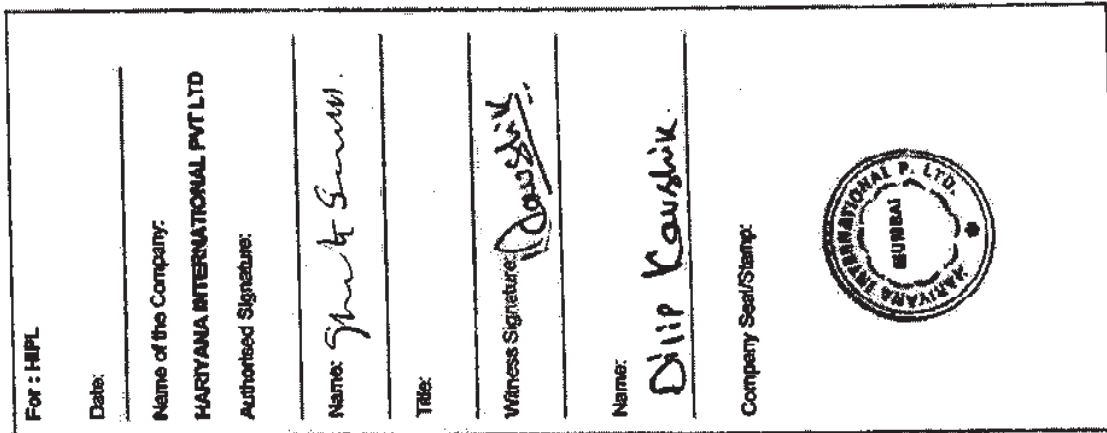 For : HIPL
Date:
Name of the Company:
HARIYANA INTERNATIONAL PVT LTD
Authorised Signature:
Name:
Title:
Witness Signature: Kaushik
Name:
Dilip Kaushik.
Company Seal/Stamp:
HARIYANA INTERNATIONAL P. LTD.
MUMBAI